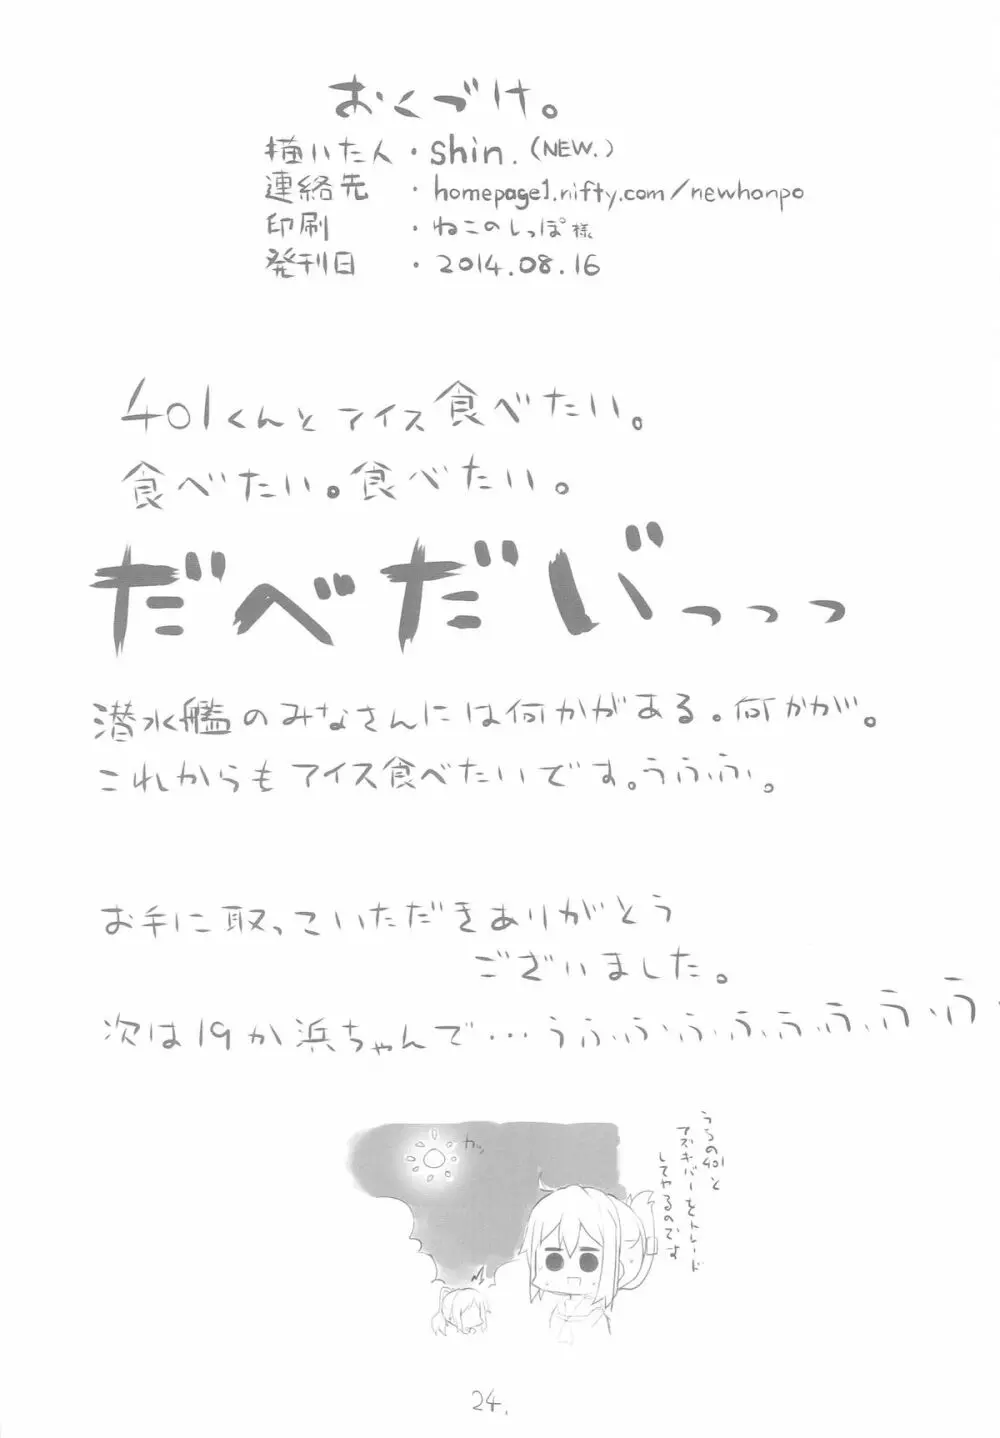 おくづけ。
描いた人・shin.(NEW.)
連絡先・homepage1.nifty.com/newhanpo
印刷・ねこのしっぽ様
発刊日・2014.08.16
401くんとアイス食べたい。
食べたい。食べたい。
だべだい゛っっっ
潜水艦のみなさんには何かがある。何かが。
これからもアイス食べたいです。うふふふ。
お手に取っていただきありがとう
ございました。
次は19か浜ちゃんで…うふふうふふうふふうふ
カッ
うちの401と
アズキバーをトレード
してやるのです
24.